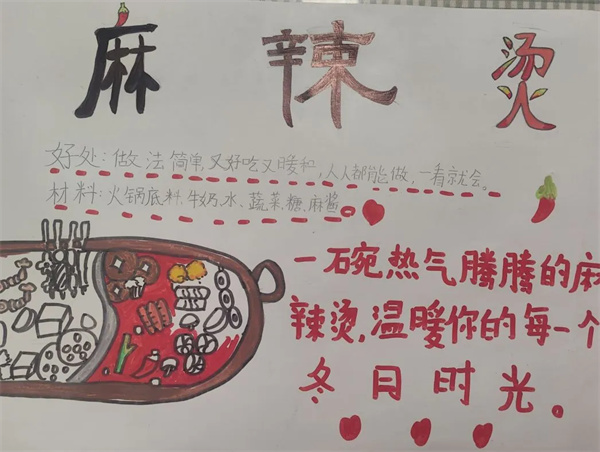 麻辣烫
好处:做法简单,又好吃又暖和,人人都能做,一看就会。
材料:火锅底料、牛奶、水、蔬菜、糖、麻酱
一碗热气腾腾的麻
辣烫,温暖你的每一个
冬日时光。